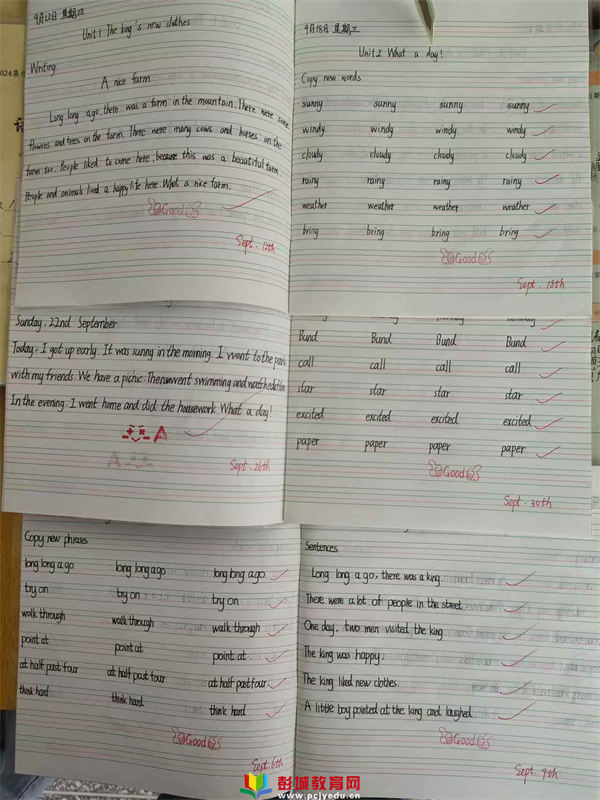 9月12日 星期四
Unit 1 The king's new clothes
Writing
A nice farm
Long long ago, there was a farm in the mountain. There were some
flowers and trees on the farm. There were many cows and horses on the
farm too. People liked to come here, because this was a beautiful farm.
People and animals lived a happy life here. What a nice farm.
Good
Sept. 12th
9月18日 星期三
Unit 2 What a day!
Copy new words
sunny sunny sunny sunny
windy windy windy windy
cloudy cloudy cloudy cloudy
rainy rainy rainy rainy
weather weather weather weather
bring bring bring bring
Good
Sept. 18th
Sunday, 22nd September
Today, I got up early. It was sunny in the morning. I went to the park
with my friends. We have a picnic. Then went swimming and watched film
In the evening. I went home and did the housework. What a day!
A
Sept. 26th
Bund Bund Bund Bund
call call call call
star star star star
excited excited excited excited
paper paper paper paper
Good
Sept. 30th
Copy new phrases
long long ago long long ago long long ago
try on try on try on
walk through walk through walk through
point at point at point at
at half past four at half past four at half past four
think hard think hard think hard
Good
Sept. 6th
Sentences
Long long ago, there was a king.
There were a lot of people in the street.
One day, two men visited the king.
The king was happy.
The king liked new clothes.
A little boy pointed at the king and laughed.
Good
Sept. 9th
彭城教育网
www.pcjyedu.cn